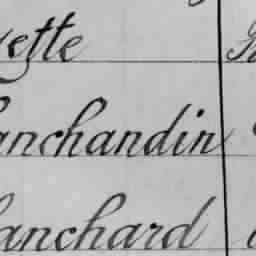 yette
anchandin
lanchard